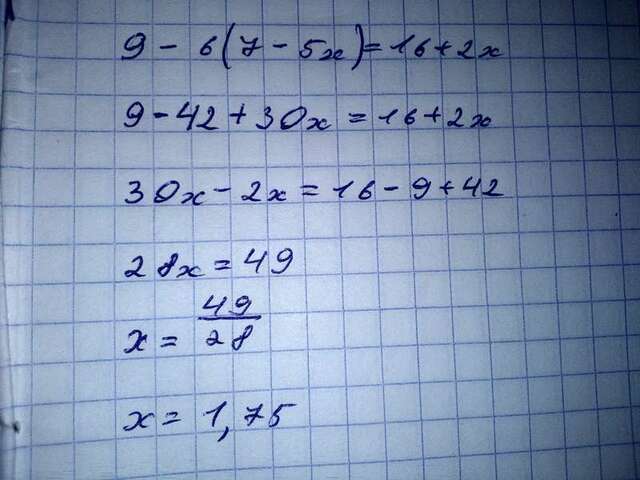 9 - 6(7 - 5x) = 16 + 2x
9 - 42 + 30x = 16 + 2x
30x - 2x = 16 - 9 + 42
28x = 49
x = 49/28
x = 1,75